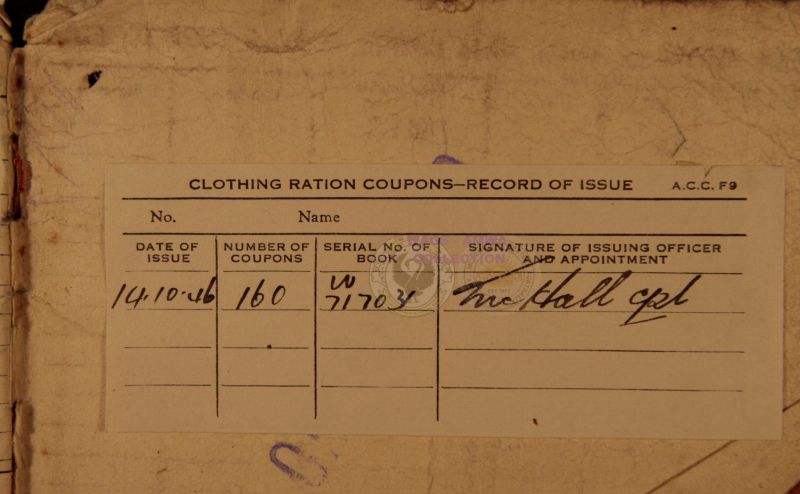 CLOTHING RATION COUPONS—RECORD OF ISSUE A.C.C. F9
No. Name
DATE OF ISSUE NUMBER OF COUPONS SERIAL No. OF BOOK SIGNATURE OF ISSUING OFFICER AND APPOINTMENT
14.10.46 160 W 71703 Hall cpl
COLLECTION